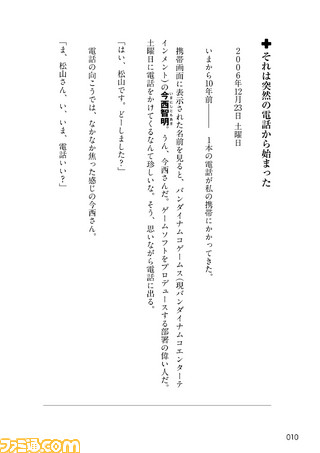 ✚それは突然の電話から始まった
2006年12月23日 土曜日
いまから10年前―― 1本の電話が私の携帯にかかってきた。
携帯画面に表示された名前を見ると、バンダイナムコゲームス(現バンダイナムコエンターテ
インメント)の今西智明。うん、今西さんだ。ゲームソフトをプロデュースする部署の偉い人だ。
土曜日に電話をかけてくるなんて珍しいな。そう、思いながら電話に出る。
「はい、松山です。どーしました?」
電話の向こうでは、なかなか焦った感じの今西さん。
「ま、松山さん、い、いま、電話いい?」
010
ファミ通.com